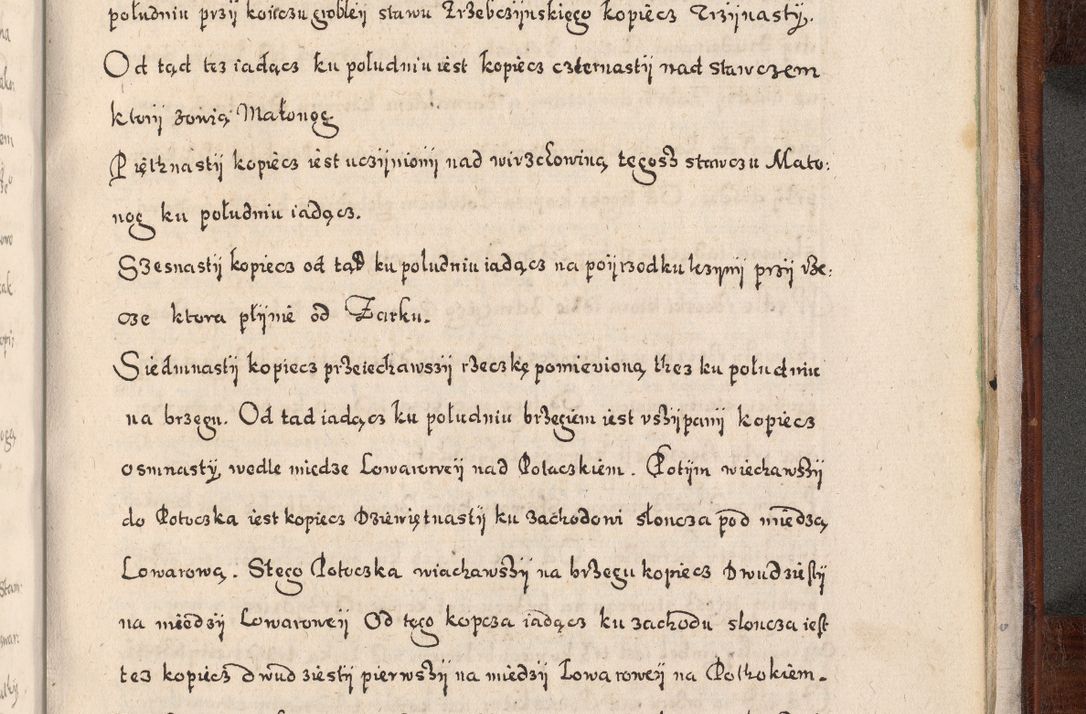 południu przÿ kończu grobleÿ stawu Trzebczÿnskiego kopiecz Trzÿnastÿ.
Od tąd tez iadącz ku południu iest kopiecz czternastÿ nad stawczem
ktorÿ zowią Małonog.
Piętknastÿ kopiecz iest uczÿnionÿ nad wirzchowiną tegosz stawczu Mało:
nog ku południu iadącz.
Szesnastÿ kopiecz od tąd ku południu iadącz na poÿrzodku przÿ rze:
cze ktora płÿnie od Żarku.
Siedmnastÿ kopiecz prżeiechawszÿ rzeczkę pomieniona thez ku południu
na brzegu. Od tad iadącz ku południu brżegiem iest vsżÿpanÿ kopiecz
osmnastÿ wedle miedze Lowaroweÿ nad Potaczkiem. Potÿm wiechawszÿ
do Potoczka iest kopiecz Dziewiętnastÿ ku zachodowi słoncza pod miedzą
Lowarową. Stego Potoczka wiachawszÿ na brżegu kopiecz Dwudziestÿ
na miedzÿ Lowaroweÿ Od tego kopcza iadącz ku zachodu słoncza iest
tez kopiecz dwudziestÿ pierwszÿ na miedzÿ Lowaroweÿ na Pothokiem.